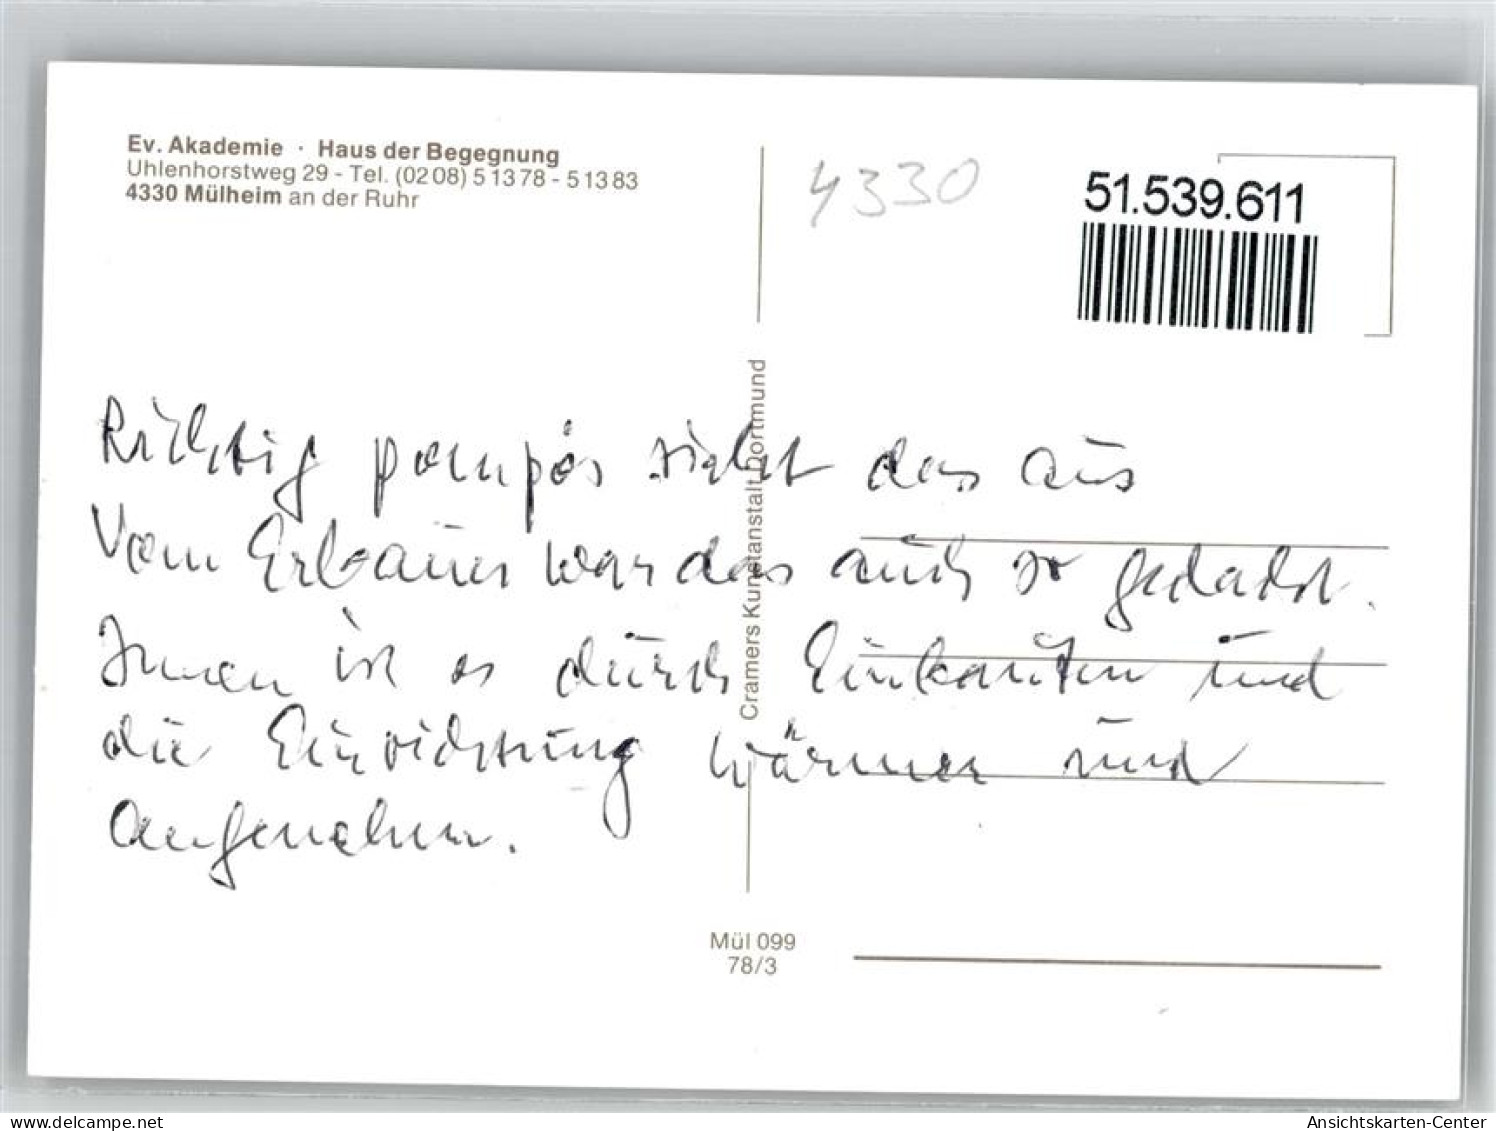 Ev. Akademie · Haus der Begegnung
Uhlenhorstweg 29 - Tel. (0208) 51378 - 51383
4330 Mülheim an der Ruhr
4330
51.539.611
Cramers Kunstanstalt Dortmund
Richtig pompös sieht das aus
Vom Erbauer war das auch so gedacht.
Innen ist es durch Einbauten und
die Einrichtung wärmer und
angenehm.
Mül 099
78/3
oldthing.de
Ansichtskarten-Center